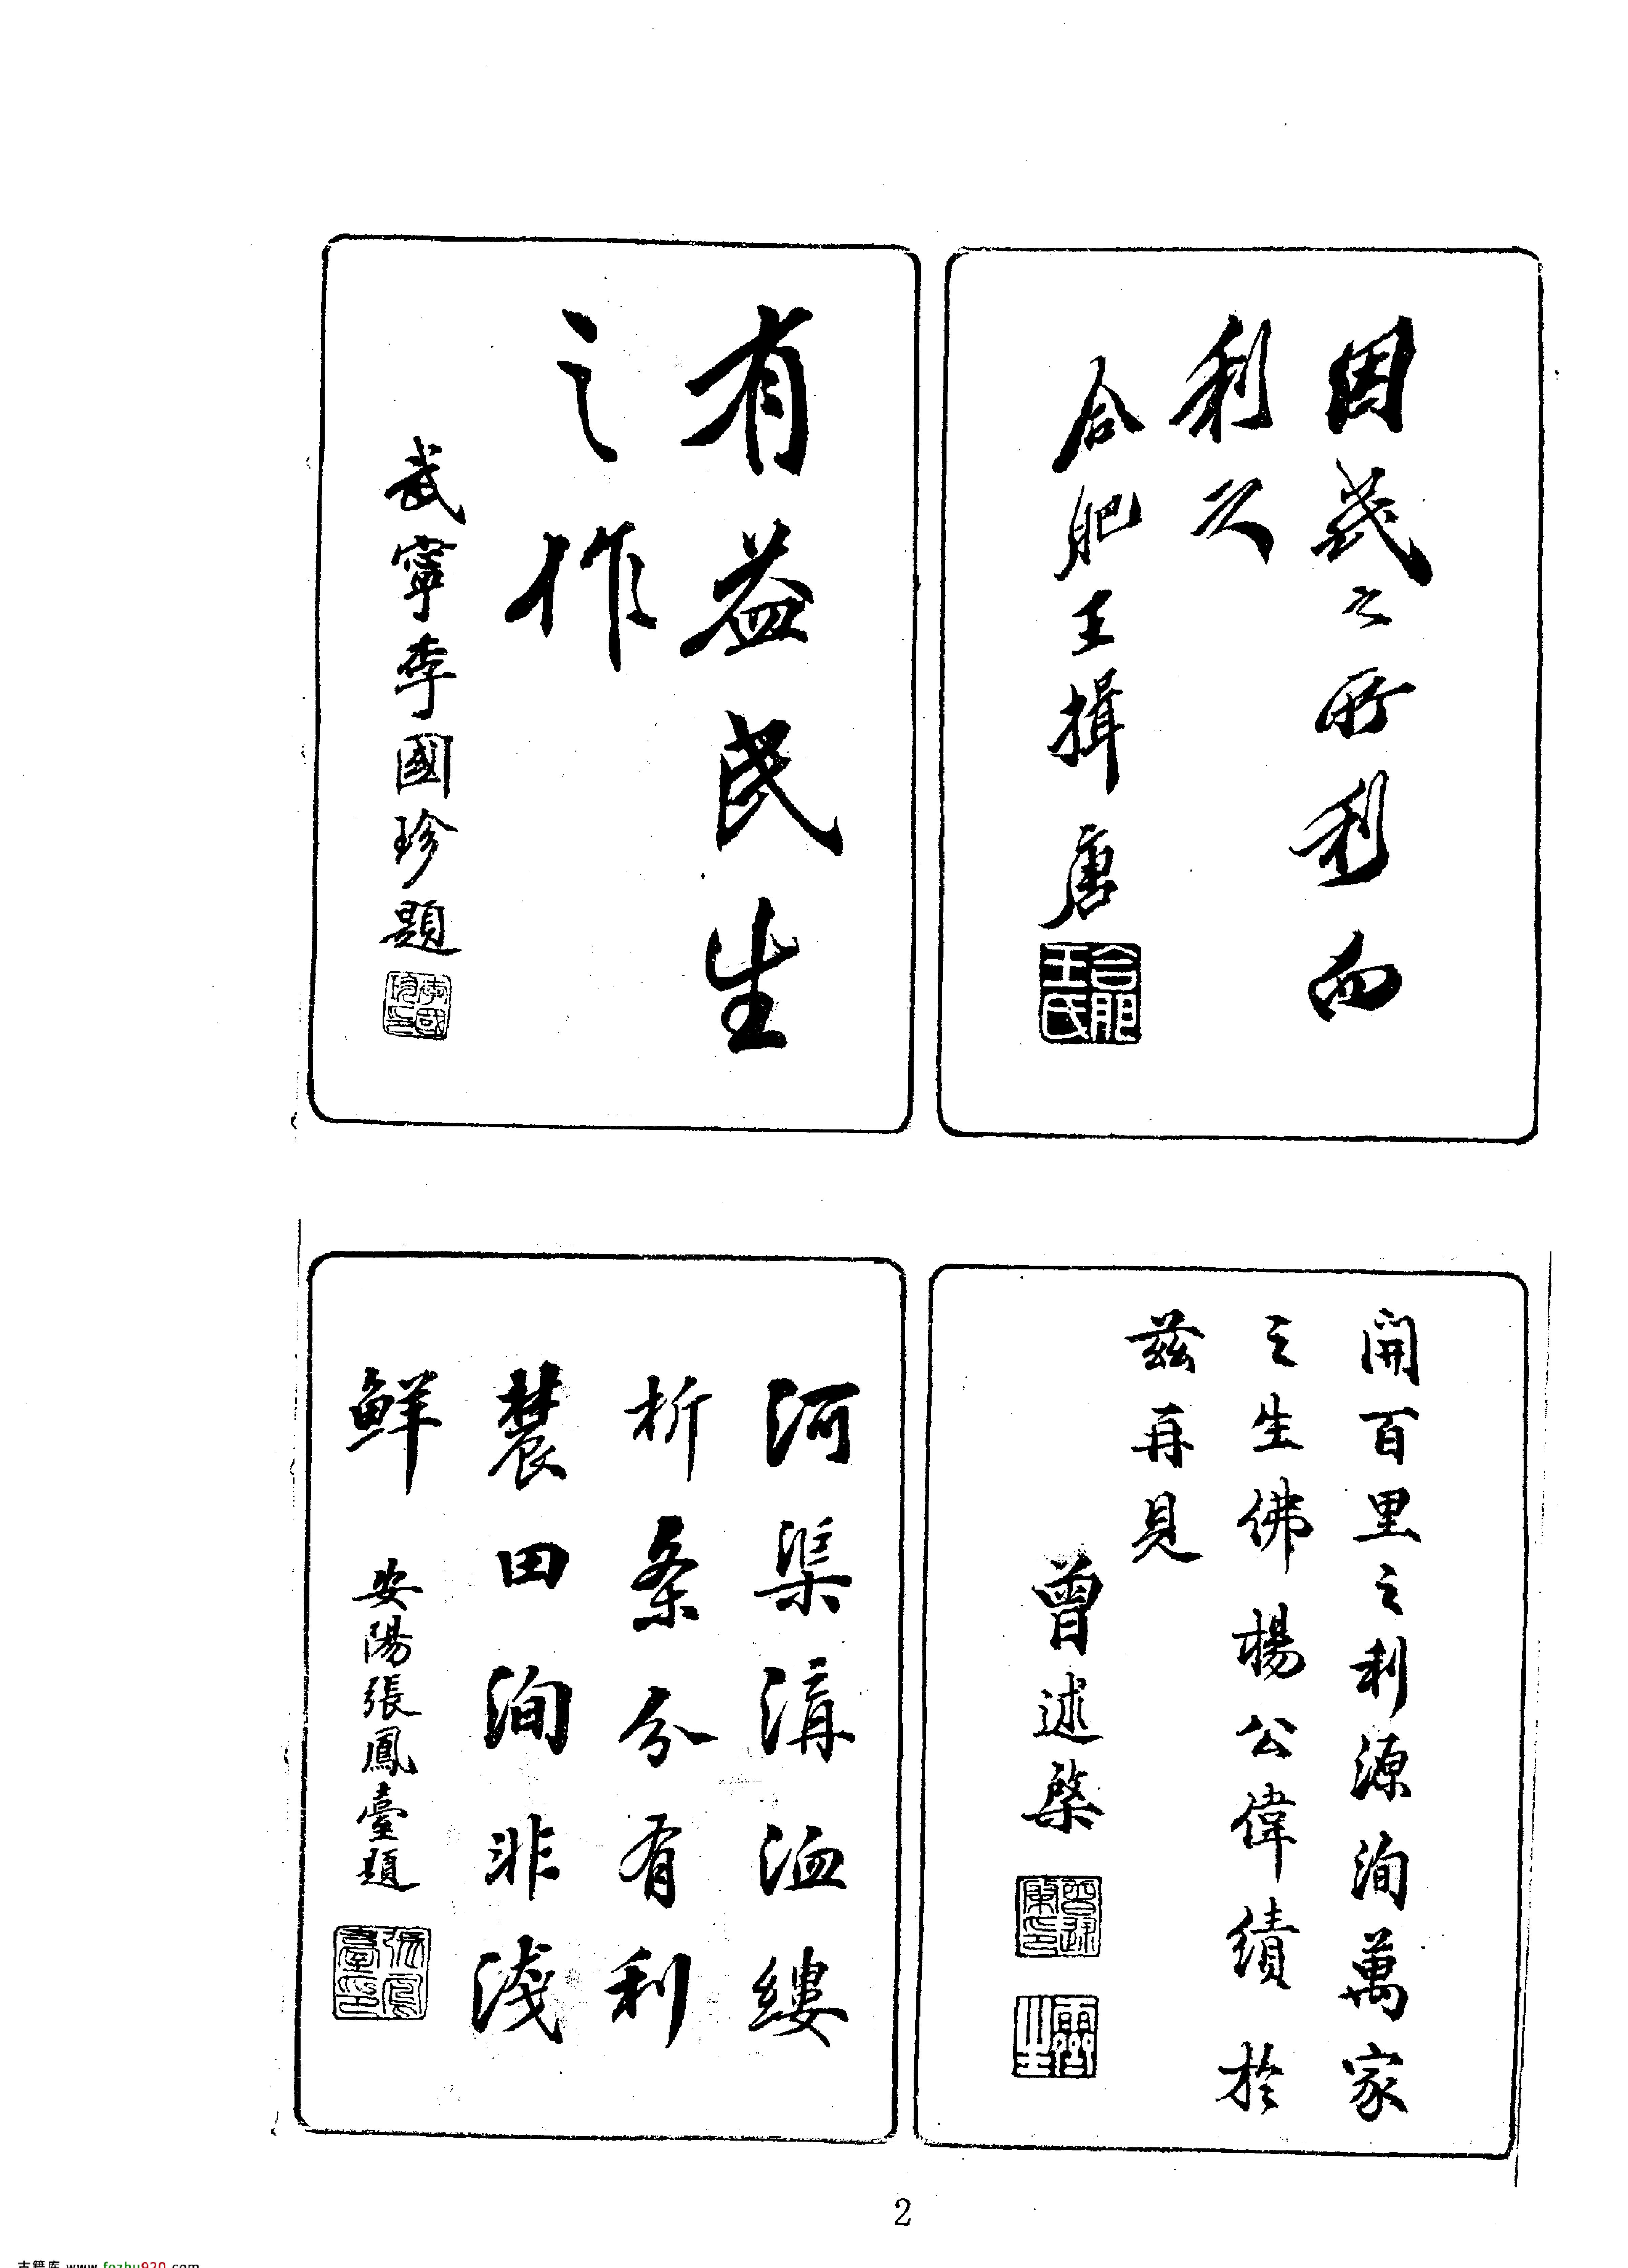 因民之所利而
利之
合肥王揖唐
合肥
王氏
有益民生
之作
武寧李國珍題
李國
珍印
開百里之利源洵萬家
之生佛楊公偉績於
茲再見
曾述棨
曾述
棨印
霽
生
河渠溝洫縷
析条分有利
農田洵非淺
鮮
安陽張鳳臺題
張鳳
臺印
2
古籍库 www.fozhu920.com